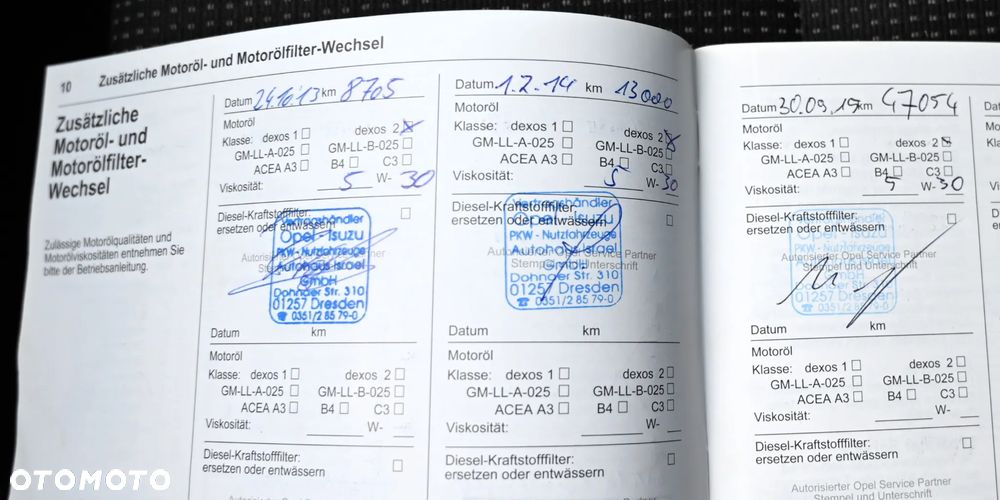 10 Zusätzliche Motoröl- und Motorölfilter-Wechsel
Zusätzliche
Motoröl- und
Motorölfilter-
Wechsel
Zulässige Motorölqualitäten und
Motorölviskositäten entnehmen Sie
bitte der Betriebsanleitung.
Datum 24.10.13 km 8705
Motoröl
Klasse: dexos 1 dexos 2
GM-LL-A-025 GM-LL-B-025
ACEA A3 B4 C3
Viskosität: 5 W- 30
Diesel-Kraftstofffilter:
ersetzen oder entwässern
Vertragshändler
Opel Isuzu
PKW - Nutzfahrzeuge
Autohaus Israel
GmbH
Dohnaer Str. 310
01257 Dresden
☎ 0351/2 85 79-0
Datum km
Motoröl
Klasse: dexos 1 dexos 2
GM-LL-A-025 GM-LL-B-025
ACEA A3 B4 C3
Viskosität: W-
Diesel-Kraftstofffilter:
ersetzen oder entwässern
Datum 1.2.14 km 13000
Motoröl
Klasse: dexos 1 dexos 2
GM-LL-A-025 GM-LL-B-025
ACEA A3 B4 C3
Viskosität: 5 W- 30
Diesel-Kraftstofffilter:
ersetzen oder entwässern
Vertragshändler
Opel Isuzu
PKW - Nutzfahrzeuge
Autohaus Israel
GmbH
Dohnaer Str. 310
01257 Dresden
☎ 0351/2 85 79-0
Datum km
Motoröl
Klasse: dexos 1 dexos 2
GM-LL-A-025 GM-LL-B-025
ACEA A3 B4 C3
Viskosität: W-
Diesel-Kraftstofffilter:
ersetzen oder entwässern
Datum 30.09.19 km 47054
Motoröl
Klasse: dexos 1 dexos 2
GM-LL-A-025 GM-LL-B-025
ACEA A3 B4 C3
Viskosität: 5 W- 30
Diesel-Kraftstofffilter:
ersetzen oder entwässern
Autorisierter Opel Service Partner
Stempel und Unterschrift
Dohnaer Str. 310
01257 Dresden
Datum km
Motoröl
Klasse: dexos 1 dexos 2
GM-LL-A-025 GM-LL-B-025
ACEA A3 B4 C3
Viskosität: W-
Diesel-Kraftstofffilter:
ersetzen oder entwässern
Autorisierter Opel Service Partner
OTOMOTO